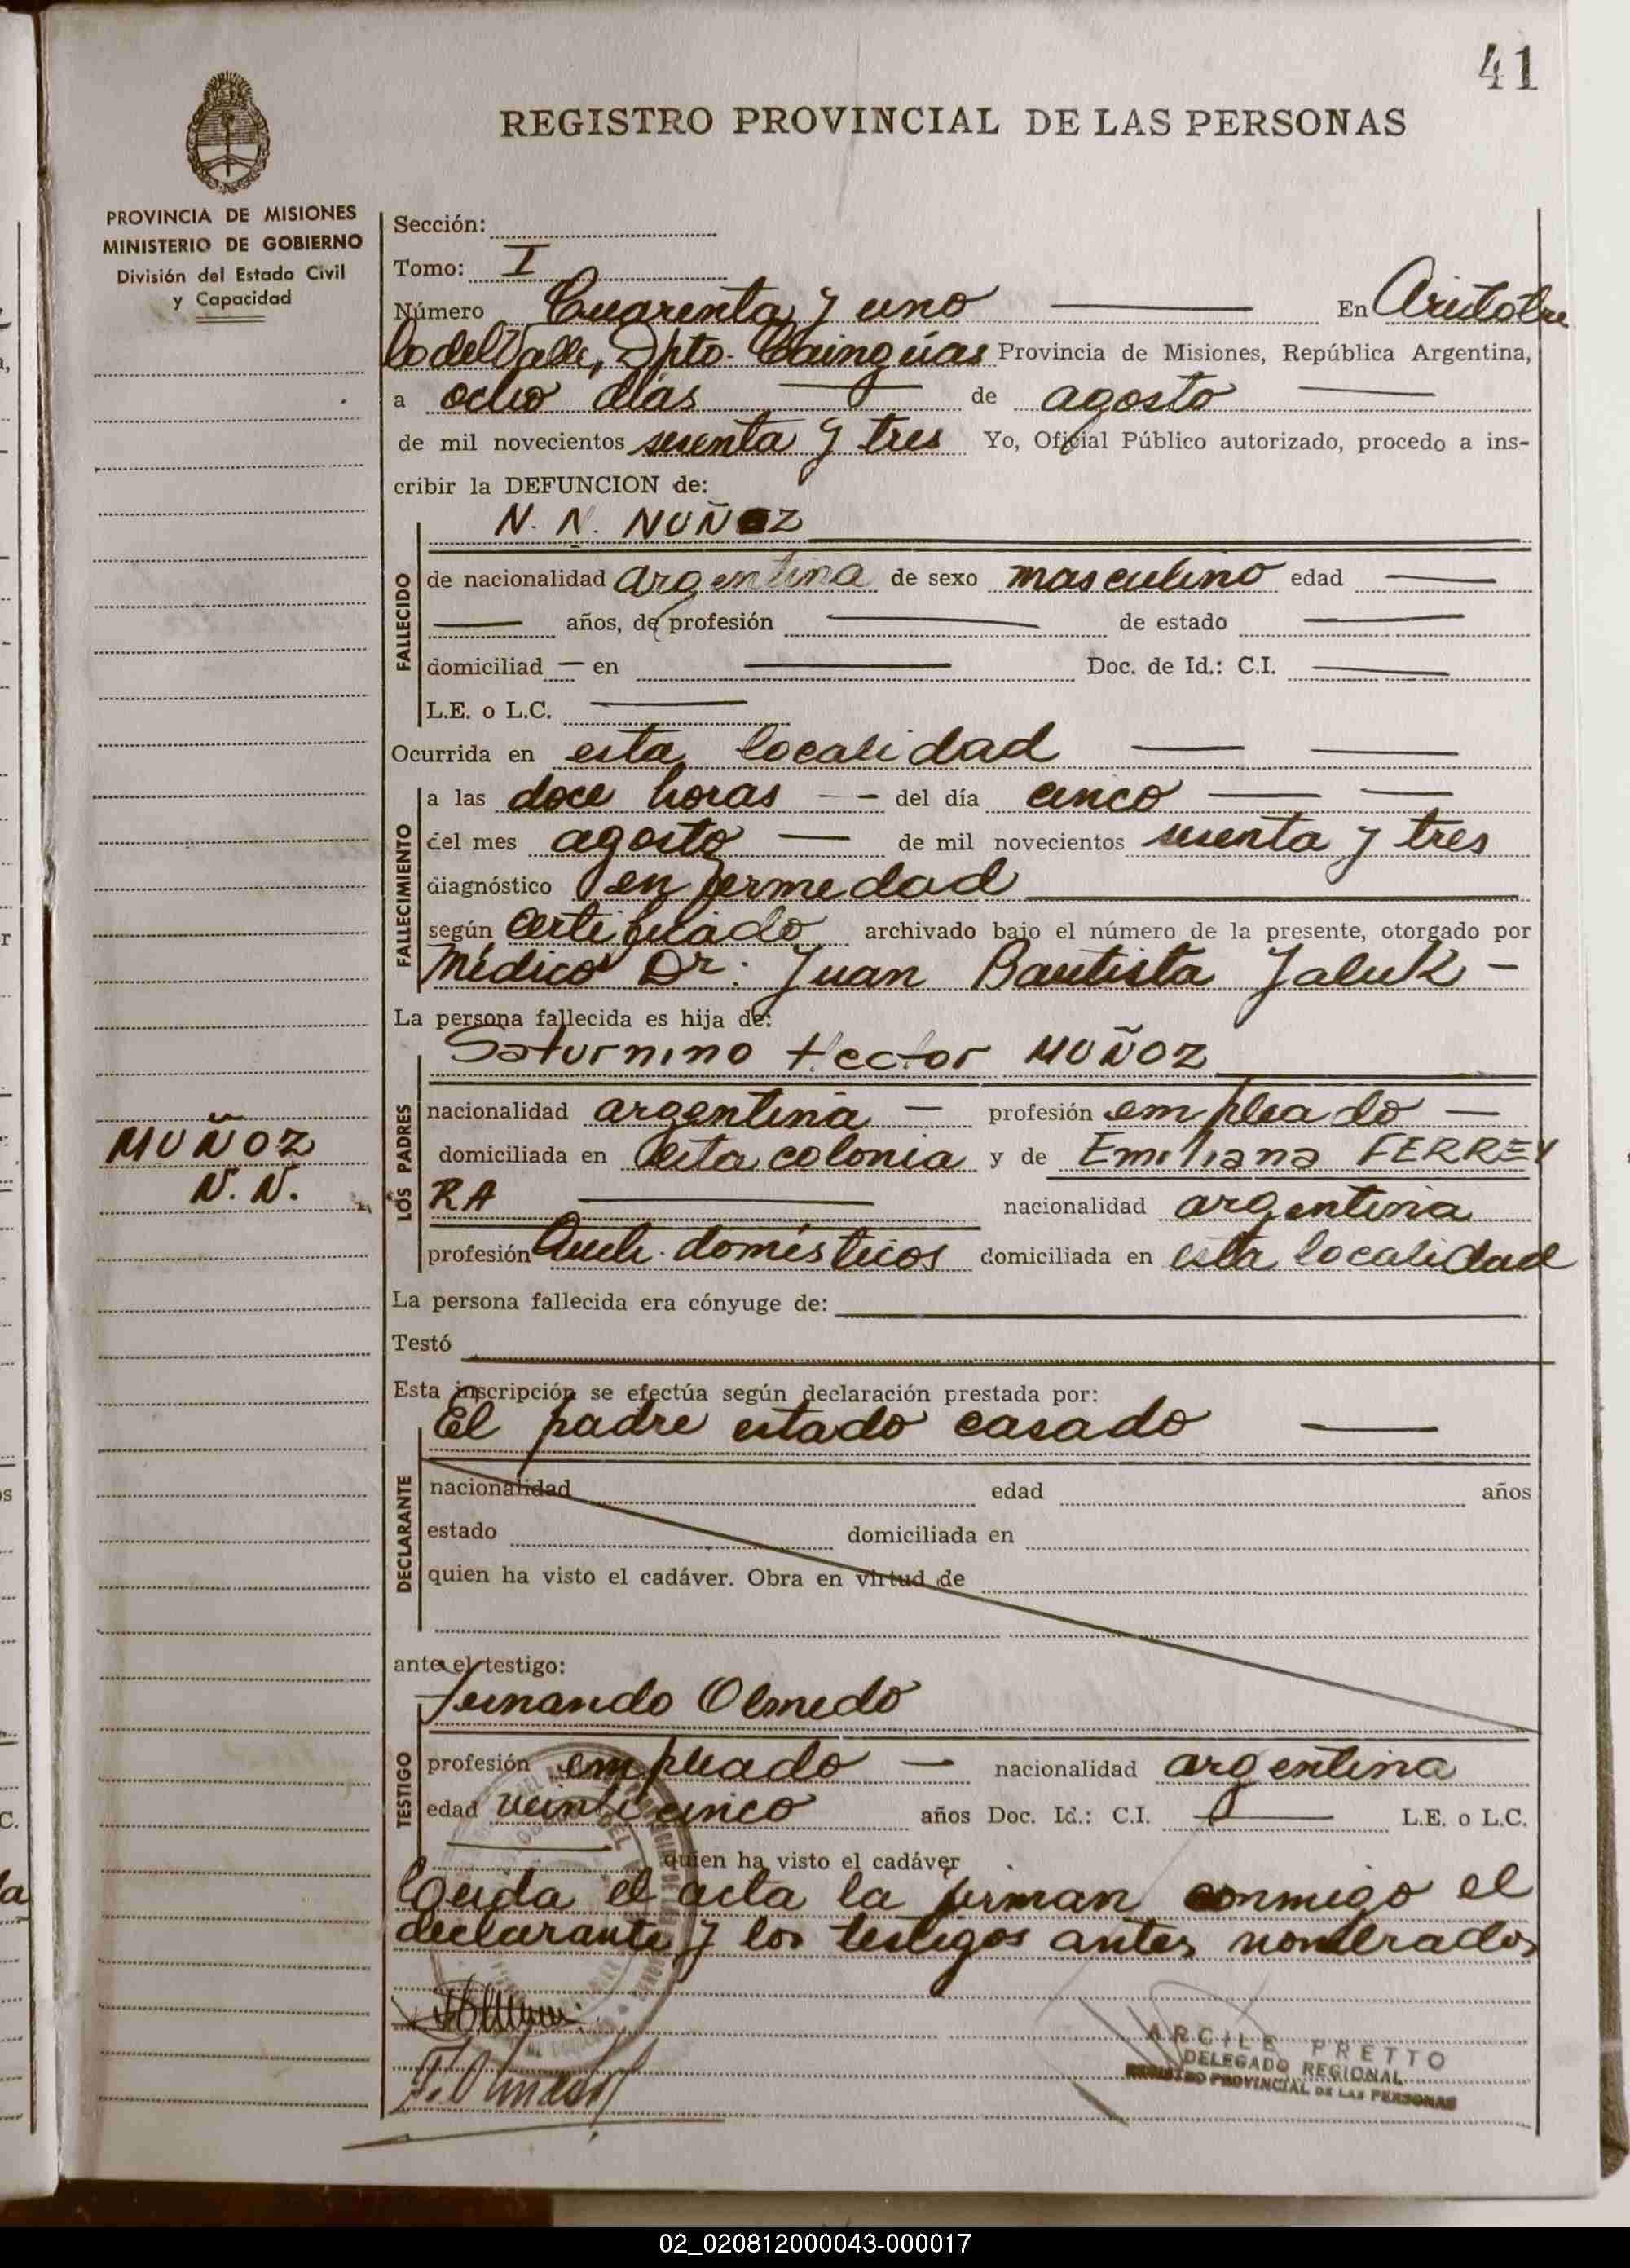 41
REGISTRO PROVINCIAL DE LAS PERSONAS
PROVINCIA DE MISIONES
MINISTERIO DE GOBIERNO
División del Estado Civil
y Capacidad
Sección:
Tomo: I
Número Cuarenta y uno En Aristóbu
lo del Valle, Dpto. Cainguás Provincia de Misiones, República Argentina,
a ocho días de agosto
de mil novecientos sesenta y tres Yo, Oficial Público autorizado, procedo a ins-
cribir la DEFUNCION de:
FALLECIDO
N. N. NUÑOZ
de nacionalidad argentina de sexo masculino edad
años, de profesión de estado
domiciliad — en Doc. de Id.: C.I.
L.E. o L.C.
Ocurrida en esta localidad
FALLECIMIENTO
a las doce horas — del día cinco
del mes agosto — de mil novecientos sesenta y tres
diagnóstico enfermedad
según Certificado archivado bajo el número de la presente, otorgado por
Médico Dr. Juan Bautista Jaluk —
La persona fallecida es hija de:
LOS PADRES
Saturnino Hector MUÑOZ
nacionalidad argentina — profesión empleado —
domiciliada en esta colonia y de Emiliana FERREY
RA nacionalidad argentina
profesión Queh. domésticos domiciliada en esta localidad
MUÑOZ
N. N.
La persona fallecida era cónyuge de:
Testó
Esta inscripción se efectúa según declaración prestada por:
DECLARANTE
El padre estado casado
nacionalidad edad años
estado domiciliada en
quien ha visto el cadáver. Obra en virtud de
ante el testigo:
TESTIGO
Fernando Olmedo
profesión empleado — nacionalidad argentina
edad veinticinco años Doc. Id.: C.I. L.E. o L.C.
quien ha visto el cadáver
Leída el acta la firman conmigo el
declarante y los testigos antes nombrados
ARCILE PRETTO
DELEGADO REGIONAL
REGISTRO PROVINCIAL DE LAS PERSONAS
02_020812000043-000017